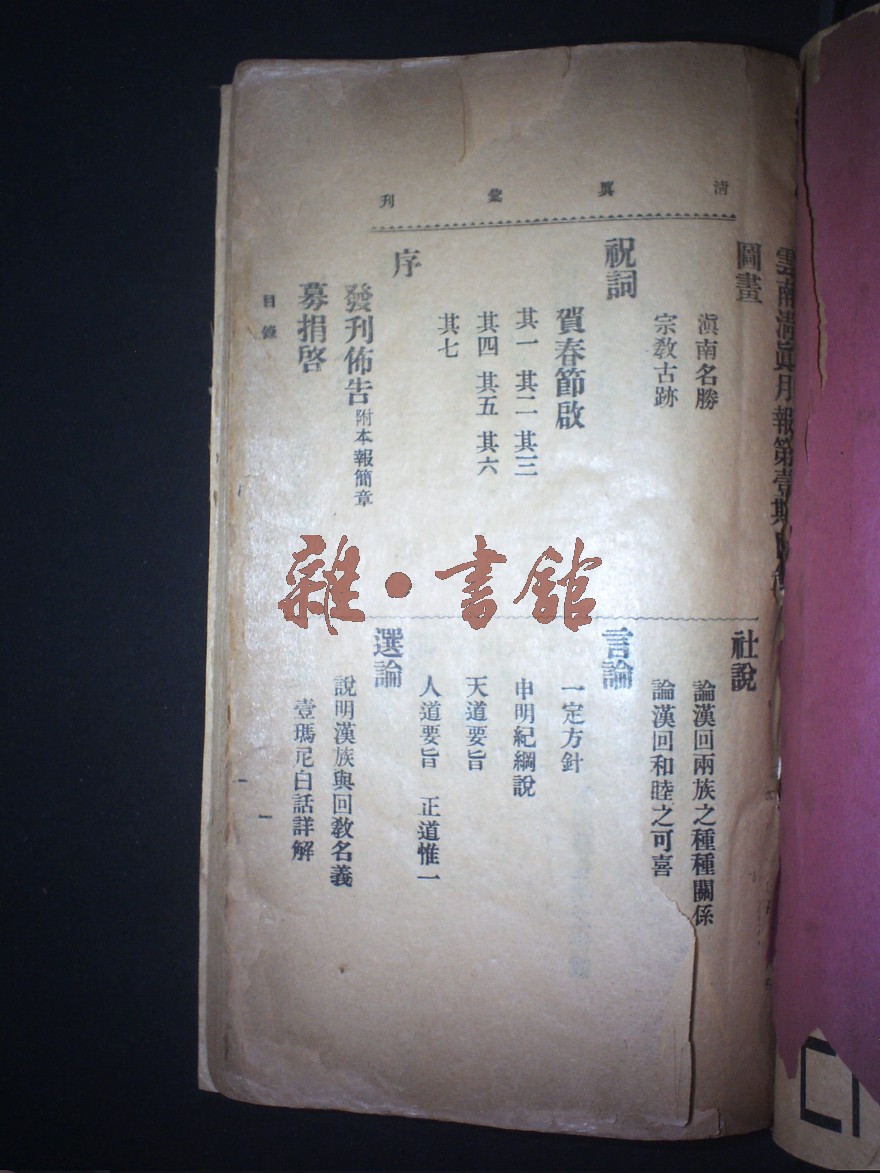 清真彙刊
雲南清眞月報第壹期目錄
圖畫
滇南名勝
宗教古跡
祝詞
賀春節啟
其一 其二 其三
其四 其五 其六
其七
序
發刊佈告 附本報簡章
募捐啓
社說
論漢回兩族之種種關係
論漢回和睦之可喜
言論
一定方針
申明紀綱說
天道要旨
人道要旨 正道惟一
選論
說明漢族與回教名義
壹瑪尼白話詳解
目錄
一
雜·書館